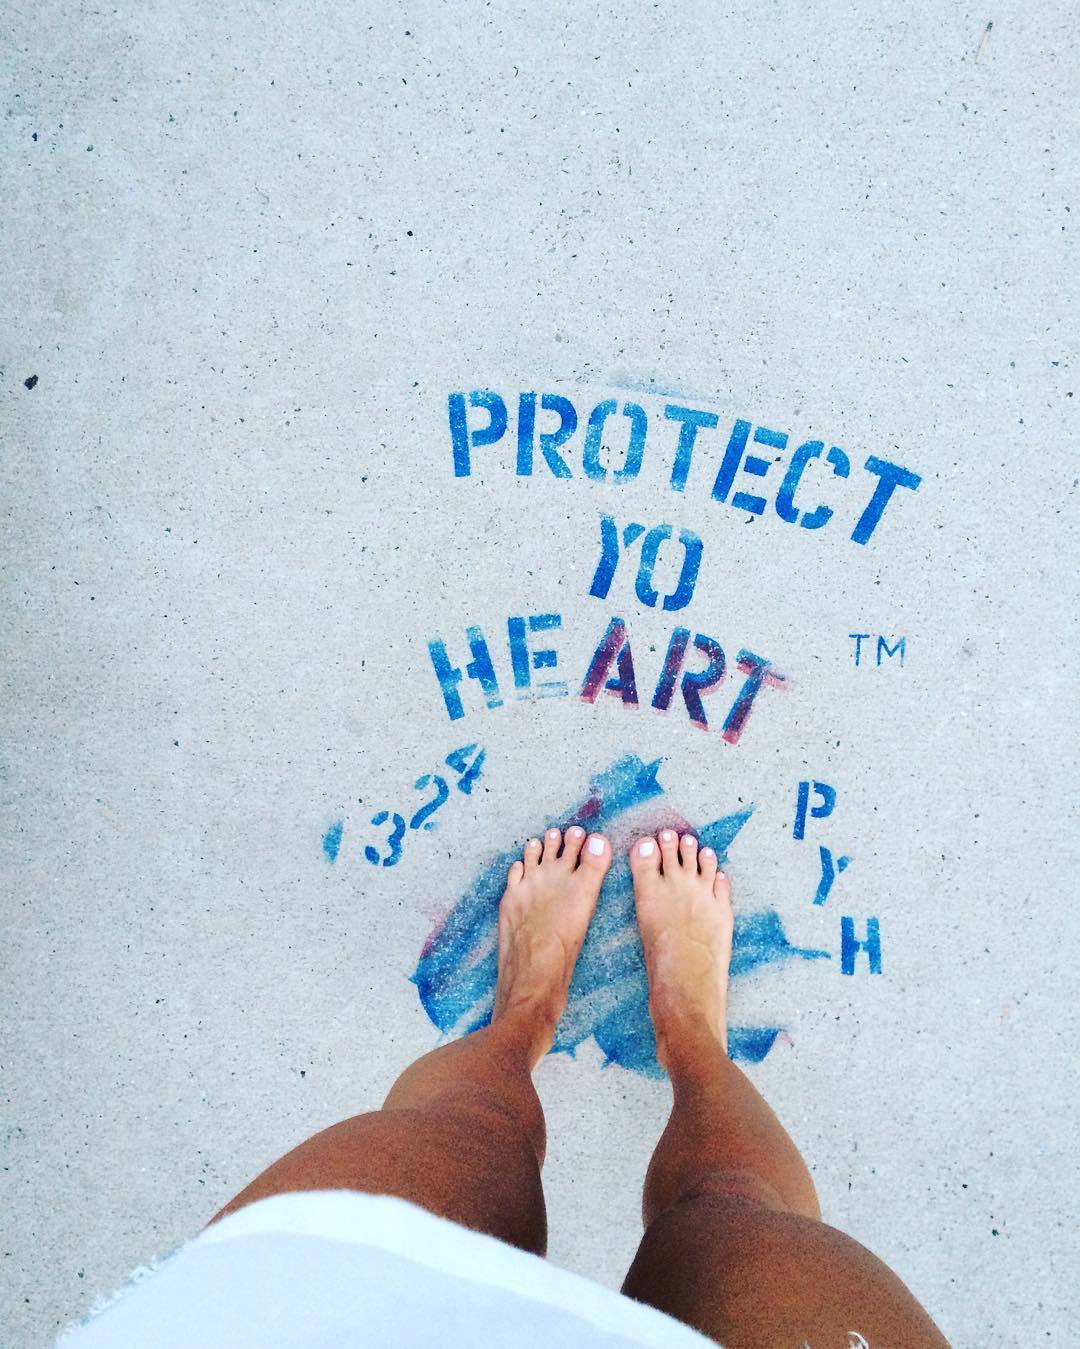 PROTECT
YO
HEART
TM
1324
PYH